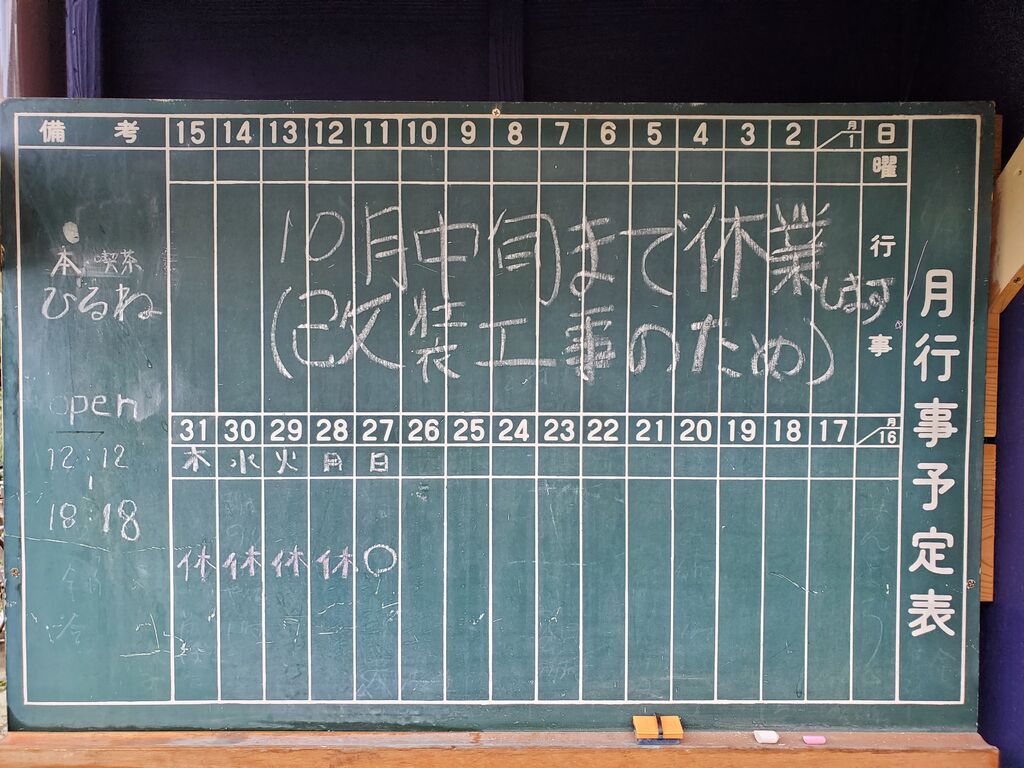 月行事予定表
日 月/1 2 3 4 5 6 7 8 9 10 11 12 13 14 15 備考
曜
行事
10月中旬まで休業します
(改装工事のため)
月/16 17 18 19 20 21 22 23 24 25 26 27 28 29 30 31
日 月 火 水 木
○ 休 休 休 休
本 喫茶
ひるね
open
12:12
18:18